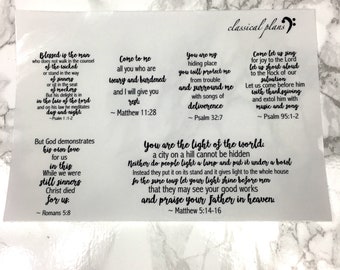 classical plans
Blessed is the man
who does not walk in the counsel
of the wicked
or stand in the way
of sinners
or sit in the seat
of mockers
But his delight is in
the law of the Lord
and on his law he meditates
day and night
~ Psalm 1:1-2
Come to me
all you who are
weary and burdened
and I will give you
rest.
~ Matthew 11:28
You are my
hiding place
you will protect me
from trouble
and surround me
with songs of
deliverence
~ Psalm 32:7
Come let us sing
for joy to the Lord
let us shout aloud
to the Rock of our
salvation
Let us come before him
with thanksgiving
and extol him with
music and song
~ Psalm 95:1-2
But God demonstrates
his own love
for us
in this
While we were
still sinners
Christ died
for us.
~ Romans 5:8
You are the light of the world;
a city on a hill cannot be hidden
Neither do people light a lamp and put it under a bowl.
Instead they put it on its stand and it gives light to the whole house
In the same way let your light shine before men
that they may see your good works
and praise your Father in heaven.
~ Matthew 5:14-16